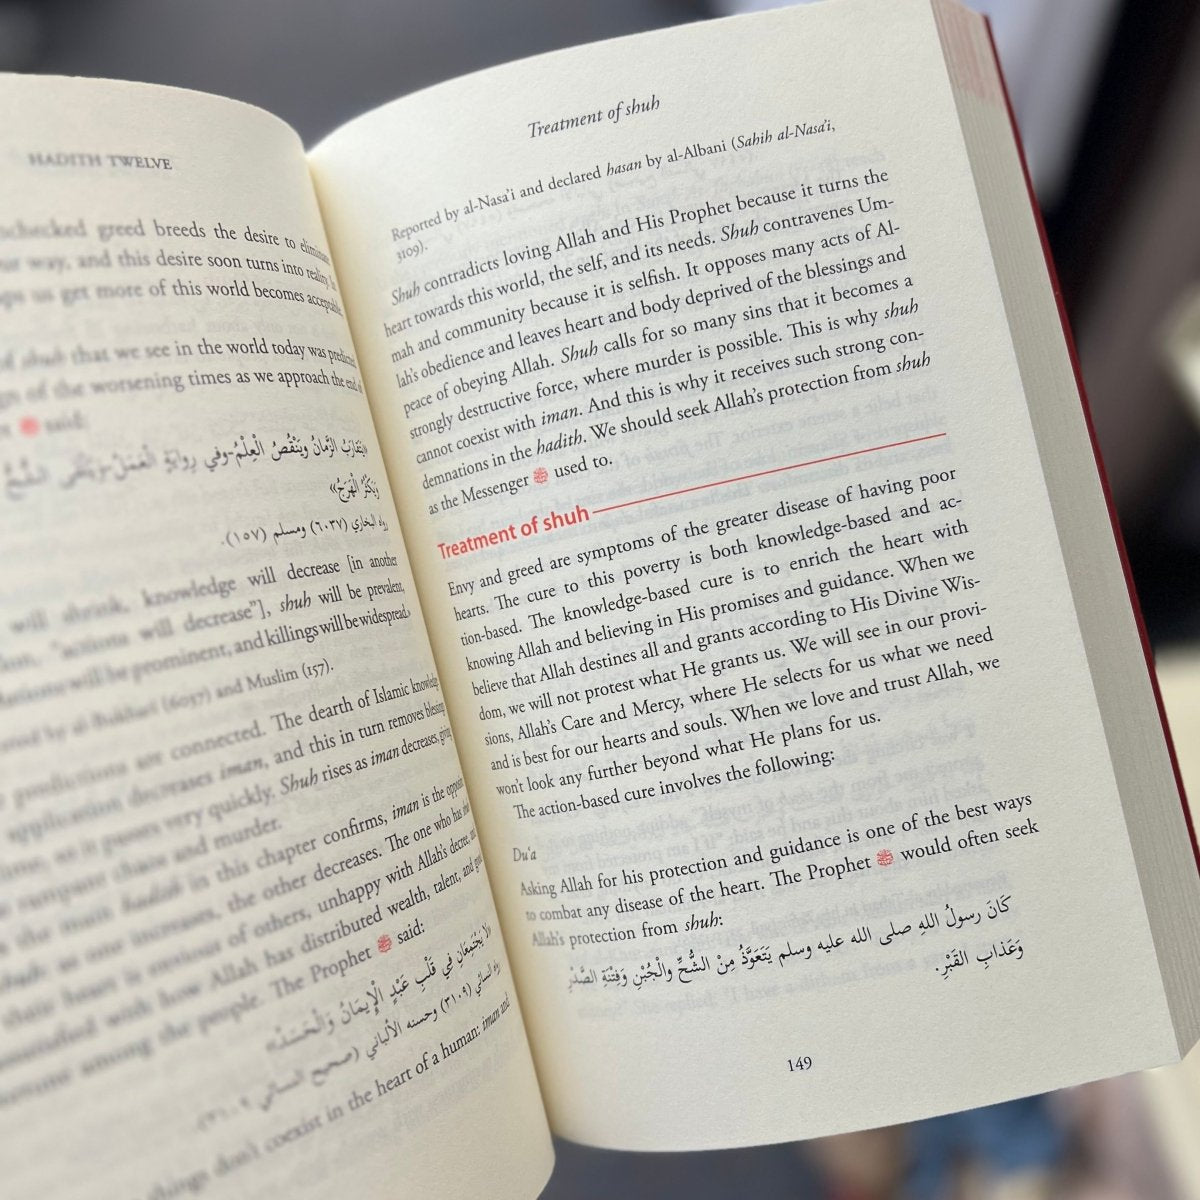 HADITH TWELVE
greed breeds the desire to eliminate
way, and this desire soon turns into reality.
us get more of this world becomes acceptable.
of shuh that we see in the world today was predicted
of the worsening times as we approach the end of
said:
يَتَقَارَبُ الزَّمَانُ وَيَنْقُصُ الْعِلْمُ-وفي رواية الْعَمَلُ-وَيُلْقَى الشُّحُّ
وَيَكْثُرُ الْهَرْجُ»
رواه البخاري (٦٠٣٧) ومسلم (١٥٧).
will shrink, knowledge will decrease [in another
"actions will decrease"], shuh will be prevalent,
will be prominent, and killings will be widespread.
by al-Bukhari (6037) and Muslim (157).
predictions are connected. The dearth of Islamic knowledge
application decreases iman, and this in turn removes blessing
very quickly. Shuh rises as iman decreases, giving
rampant chaos and murder.
the main hadith in this chapter confirms, iman is the opposite
as one increases, the other decreases. The one who has
their heart is envious of others, unhappy with Allah's decree, and
with how Allah has distributed wealth, talent, and
among the people. The Prophet ﷺ said:
«لَا يَجْتَمِعَانِ فِي قَلْبِ عَبْدٍ الْإِيمَانُ وَالْحَسَدُ»
رواه النسائي (٣١٠٩) وحسنه الألباني (صحيح النسائي ٣١٠٩).
things don't coexist in the heart of a human: iman and
Treatment of shuh
Reported by al-Nasa'i and declared hasan by al-Albani (Sahih al-Nasa'i,
3109).
Shuh contradicts loving Allah and His Prophet because it turns the
heart towards this world, the self, and its needs. Shuh contravenes Um-
mah and community because it is selfish. It opposes many acts of Al-
lah's obedience and leaves heart and body deprived of the blessings and
peace of obeying Allah. Shuh calls for so many sins that it becomes a
strongly destructive force, where murder is possible. This is why shuh
cannot coexist with iman. And this is why it receives such strong con-
demnations in the hadith. We should seek Allah's protection from shuh
as the Messenger ﷺ used to.
Treatment of shuh
Envy and greed are symptoms of the greater disease of having poor
hearts. The cure to this poverty is both knowledge-based and ac-
tion-based. The knowledge-based cure is to enrich the heart with
knowing Allah and believing in His promises and guidance. When we
believe that Allah destines all and grants according to His Divine Wis-
dom, we will not protest what He grants us. We will see in our provi-
sions, Allah's Care and Mercy, where He selects for us what we need
and is best for our hearts and souls. When we love and trust Allah, we
won't look any further beyond what He plans for us.
The action-based cure involves the following:
Du'a
Asking Allah for his protection and guidance is one of the best ways
to combat any disease of the heart. The Prophet ﷺ would often seek
Allah's protection from shuh:
كَانَ رسولُ اللهِ صلى الله عليه وسلم يَتَعَوَّذُ مِنْ الشُّحِّ والْجُبْنِ وَفِتْنَةِ الصَّدْرِ
وَعَذَابِ القَبْرِ.
149